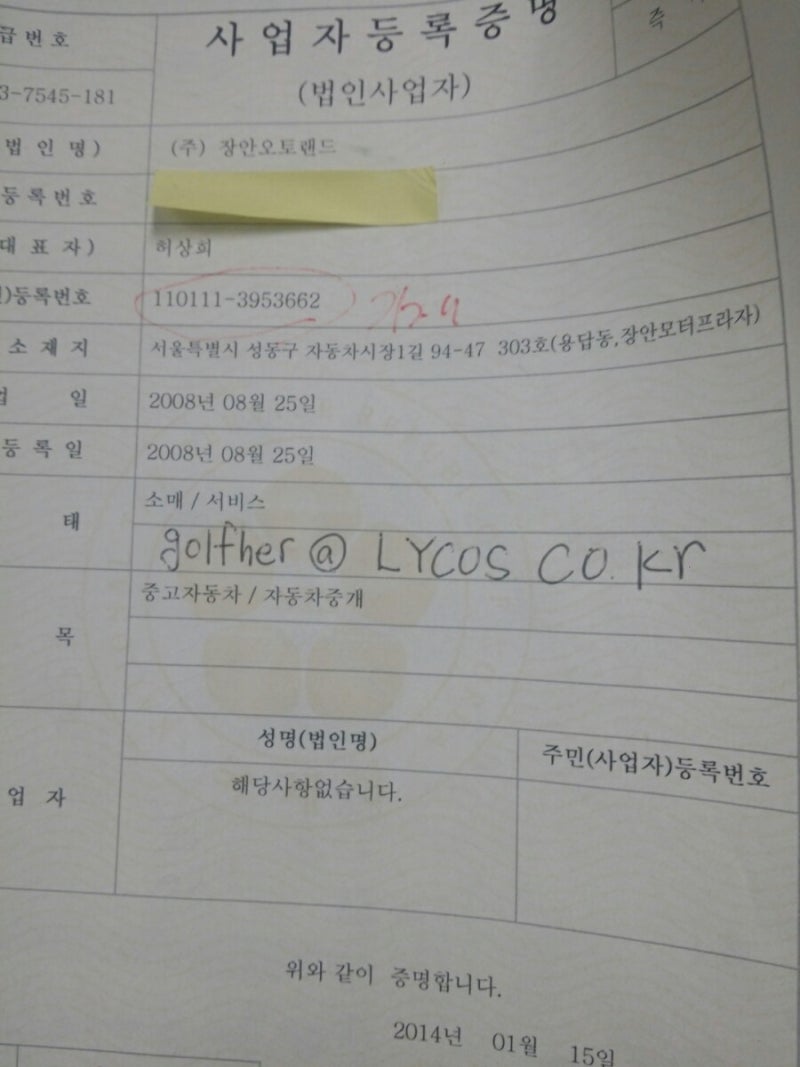 급번호
사업자등록증명
즉
(법인사업자)
3-7545-181
법인명) (주) 장안오토랜드
등록번호
대표자) 허상희
)등록번호 110111-3953662
소재지 서울특별시 성동구 자동차시장1길 94-47 303호(용답동,장안모터프라자)
업 일 2008년 08월 25일
등록일 2008년 08월 25일
태 소매 / 서비스
golfher @ LYCOS CO. kr
목 중고자동차 / 자동차중개
성명(법인명) 주민(사업자)등록번호
업 자 해당사항없습니다.
위와 같이 증명합니다.
2014년 01월 15일